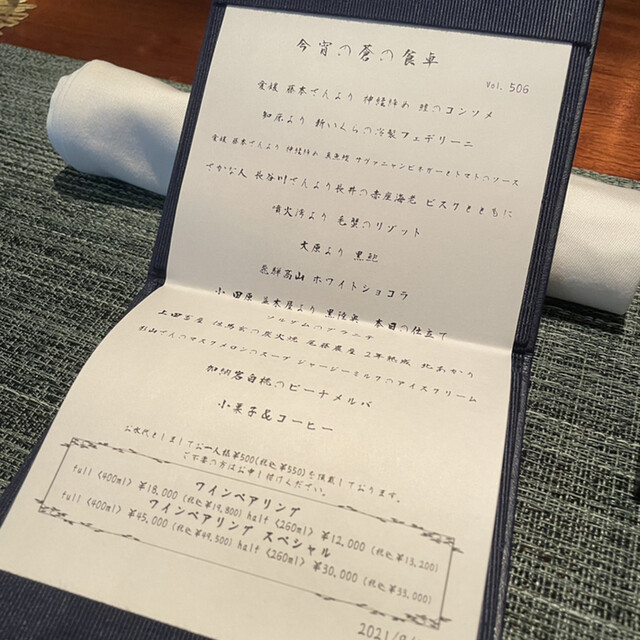 今宵の蒼の食卓
Vol. 506
愛媛 藤本さんより 神経締め 鱧のコンソメ
知床より 新いくらの冷製フェデリーニ
愛媛 藤本さんより 神経締め 真魚鰹 サヴァニャンビネガーとトマトのソース
さかな人 長谷川さんより長井の赤座海老 ビスクとともに
噴火湾より 毛蟹のリゾット
大原より 黒鮑
飛騨高山 ホワイトショコラ
小田原 より 黒 本日の仕立て
ソルダムのグラニテ
上田畜産 但馬玄の炭火焼 尾藤農産 2年熟成 北あかり
さんのマスクメロンのスープ ジャージーミルクのアイスクリーム
加納岩白桃のピーチメルバ
小菓子&コーヒー
お水代としましてお一人様¥500(税込¥550)を頂戴しております。
ご不要の方はお申し付けください。
ワインペアリング
full 〈400ml〉 ¥18,000 (税込¥19,800) half 〈260ml〉 ¥12,000 (税込¥13,200)
ワインペアリング スペシャル
full 〈400ml〉 ¥45,000 (税込¥49,500) half 〈260ml〉 ¥30,000 (税込¥33,000)
2021/